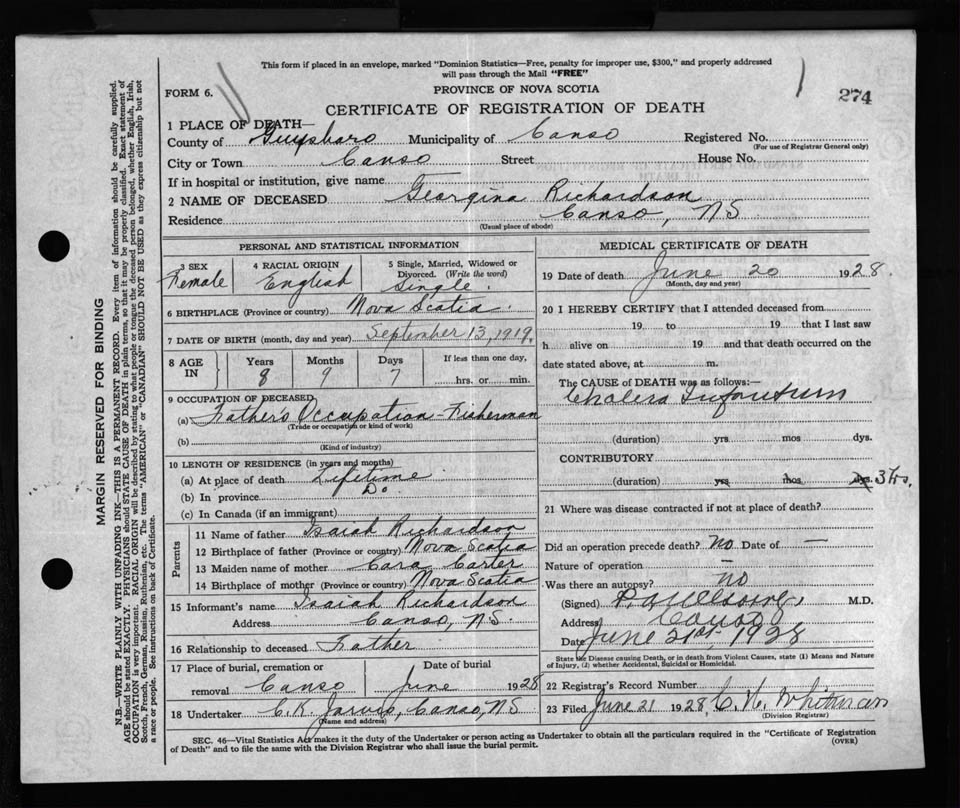 This form if placed in an envelope, marked "Dominion Statistics—Free, penalty for improper use, $300," and properly addressed
will pass through the Mail "FREE"
FORM 6.
PROVINCE OF NOVA SCOTIA
274
CERTIFICATE OF REGISTRATION OF DEATH
1 PLACE OF DEATH—
County of Guysboro Municipality of Canso Registered No.
(For use of Registrar General only)
City or Town Canso Street House No.
If in hospital or institution, give name
2 NAME OF DECEASED Georgina Richardson
Residence Canso, NS
(Usual place of abode)
PERSONAL AND STATISTICAL INFORMATION
3 SEX 4 RACIAL ORIGIN 5 Single, Married, Widowed or
Divorced. (Write the word)
Female English Single.
6 BIRTHPLACE (Province or country) Nova Scotia.
7 DATE OF BIRTH (month, day and year) September 13, 1919.
8 AGE IN Years Months Days If less than one day,
8 9 7 hrs. or min.
9 OCCUPATION OF DECEASED
(a) Father's Occupation - Fisherman
(Trade or occupation or kind of work)
(b)
(Kind of industry)
10 LENGTH OF RESIDENCE (in years and months)
(a) At place of death Lifetime
(b) In province Do.
(c) In Canada (if an immigrant)
Parents
11 Name of father Isaiah Richardson
12 Birthplace of father (Province or country) Nova Scotia
13 Maiden name of mother Cara Carter
14 Birthplace of mother (Province or country) Nova Scotia
15 Informant's name Isaiah Richardson
Address Canso, N.S.
16 Relationship to deceased Father
17 Place of burial, cremation or Date of burial
removal Canso June 1928
18 Undertaker C.K. Jarvis, Canso, NS
(Name and address)
MEDICAL CERTIFICATE OF DEATH
19 Date of death June 20 1928.
(Month, day and year)
20 I HEREBY CERTIFY that I attended deceased from
19 to 19 that I last saw
h alive on 19 and that death occurred on the
date stated above, at m.
The CAUSE of DEATH was as follows:—
Cholera Infantum
(duration) yrs mos dys.
CONTRIBUTORY
(duration) yrs mos dys. 3 hrs.
21 Where was disease contracted if not at place of death?
Did an operation precede death? No Date of —
Nature of operation —
Was there an autopsy? no
(Signed) M.D.
Address Canso
Date June 21st, 1928
State the Disease causing Death, or in death from Violent Causes, state (1) Means and Nature
of Injury, (2) whether Accidental, Suicidal or Homicidal.
22 Registrar's Record Number
23 Filed June 21 1928, C. H. Whitman
(Division Registrar)
SEC. 46—Vital Statistics Act makes it the duty of the Undertaker or person acting as Undertaker to obtain all the particulars required in the "Certificate of Registration
of Death" and to file the same with the Division Registrar who shall issue the burial permit.
(OVER)
MARGIN RESERVED FOR BINDING
N.B.—WRITE PLAINLY WITH UNFADING INK—THIS IS A PERMANENT RECORD. Every item of information should be carefully supplied.
AGE should be stated EXACTLY. PHYSICIANS should STATE CAUSE OF DEATH in plain terms, so that it may be properly classified. Exact statement of
OCCUPATION is very important. RACIAL ORIGIN will be described by stating to what people or tongue the deceased person belonged, whether English, Irish,
Scotch, French, German, Russian, Ruthenian, etc. The terms "AMERICAN" or "CANADIAN" SHOULD NOT BE USED as they express citizenship but not
a race or people. See instructions on back of Certificate.